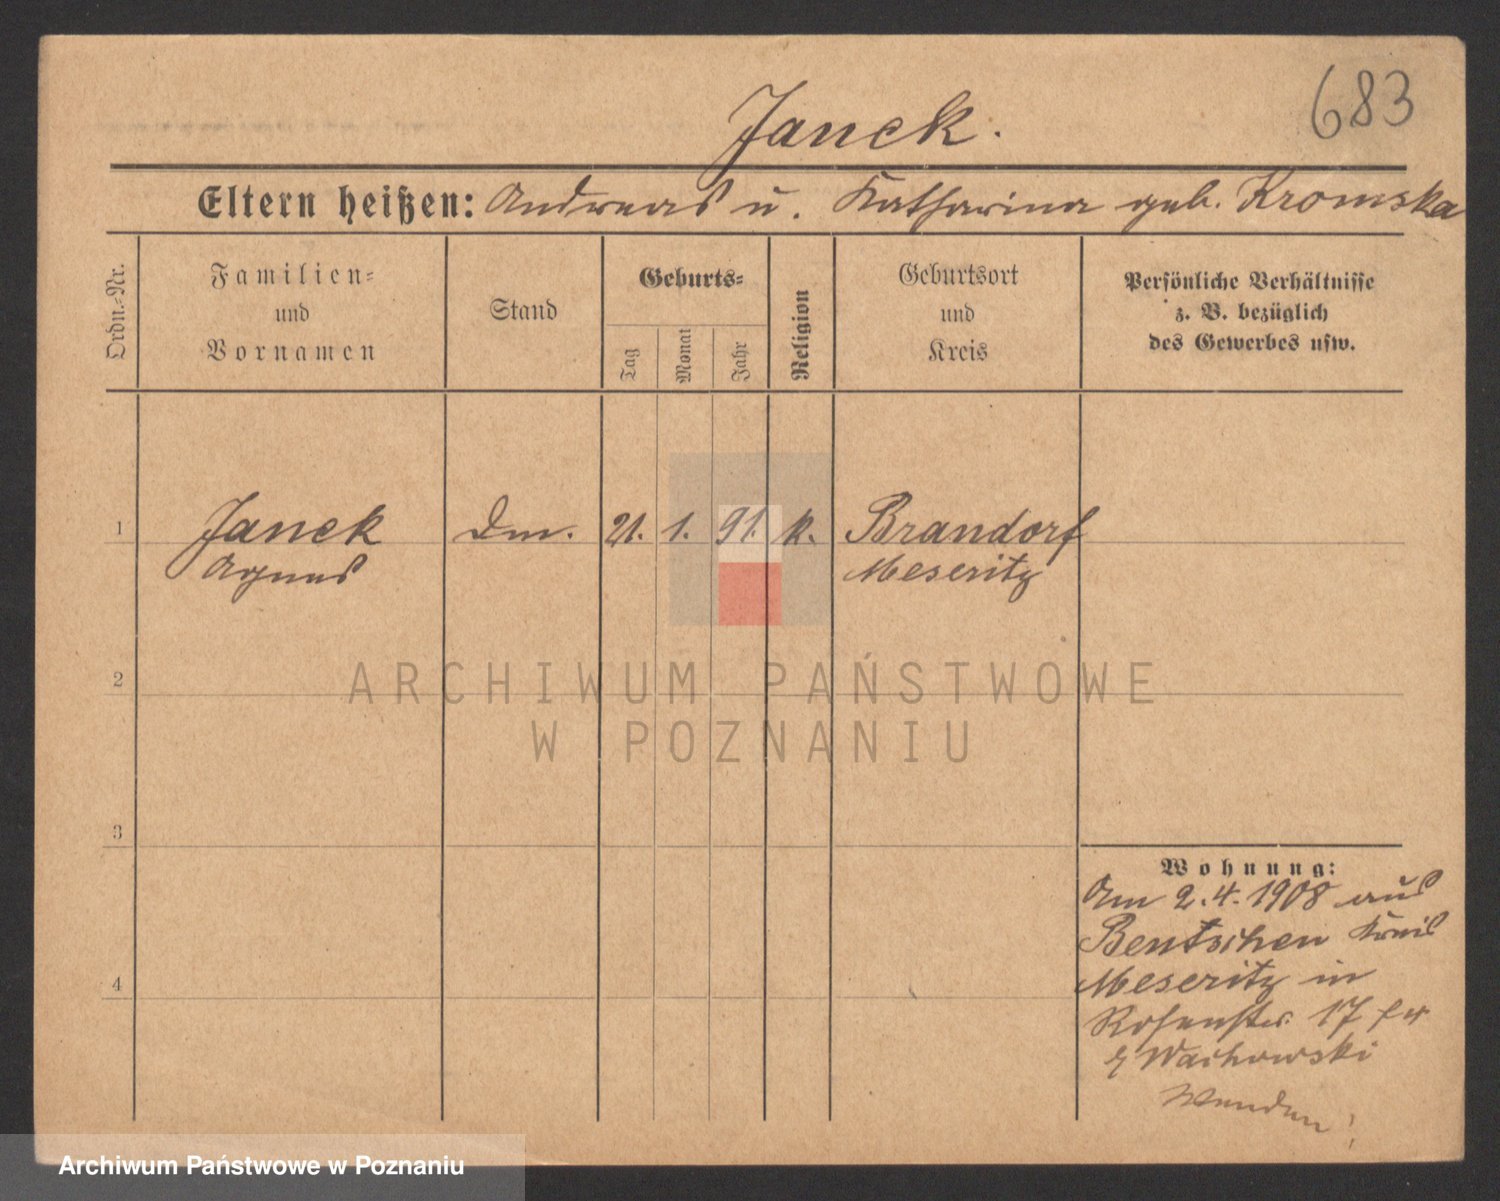 683
Janek.
Eltern heißen: Andreas u. Katharina geb. Kromska
Ordn.=Nr.
Familien=
und
Vornamen
Stand
Geburts=
Tag
Monat
Jahr
Religion
Geburtsort
und
Kreis
Persönliche Verhältnisse
z. B. bezüglich
des Gewerbes usw.
1
Janek
Agnes
Dm.
21.
1.
91.
k.
Brandorf
Meseritz
2
ARCHIWUM PAŃSTWOWE
W POZNANIU
3
4
Wohnung:
Am 2.4.1908 aus
Bentschen Kreis
Meseritz in
Rosenstr. 17
Wachowski
Wenden!
Archiwum Państwowe w Poznaniu